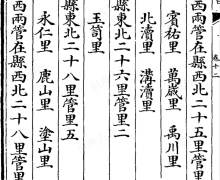 西兩管在縣西北二十五里管里
賓祐里　萬歲里　禹川里
北瀆里　溝瀆里
縣東北二十六里管里二
玉笥里
縣東北二十八里管里五
永仁里　鹿山里　塗山里
西兩管在縣西北二十八里管里